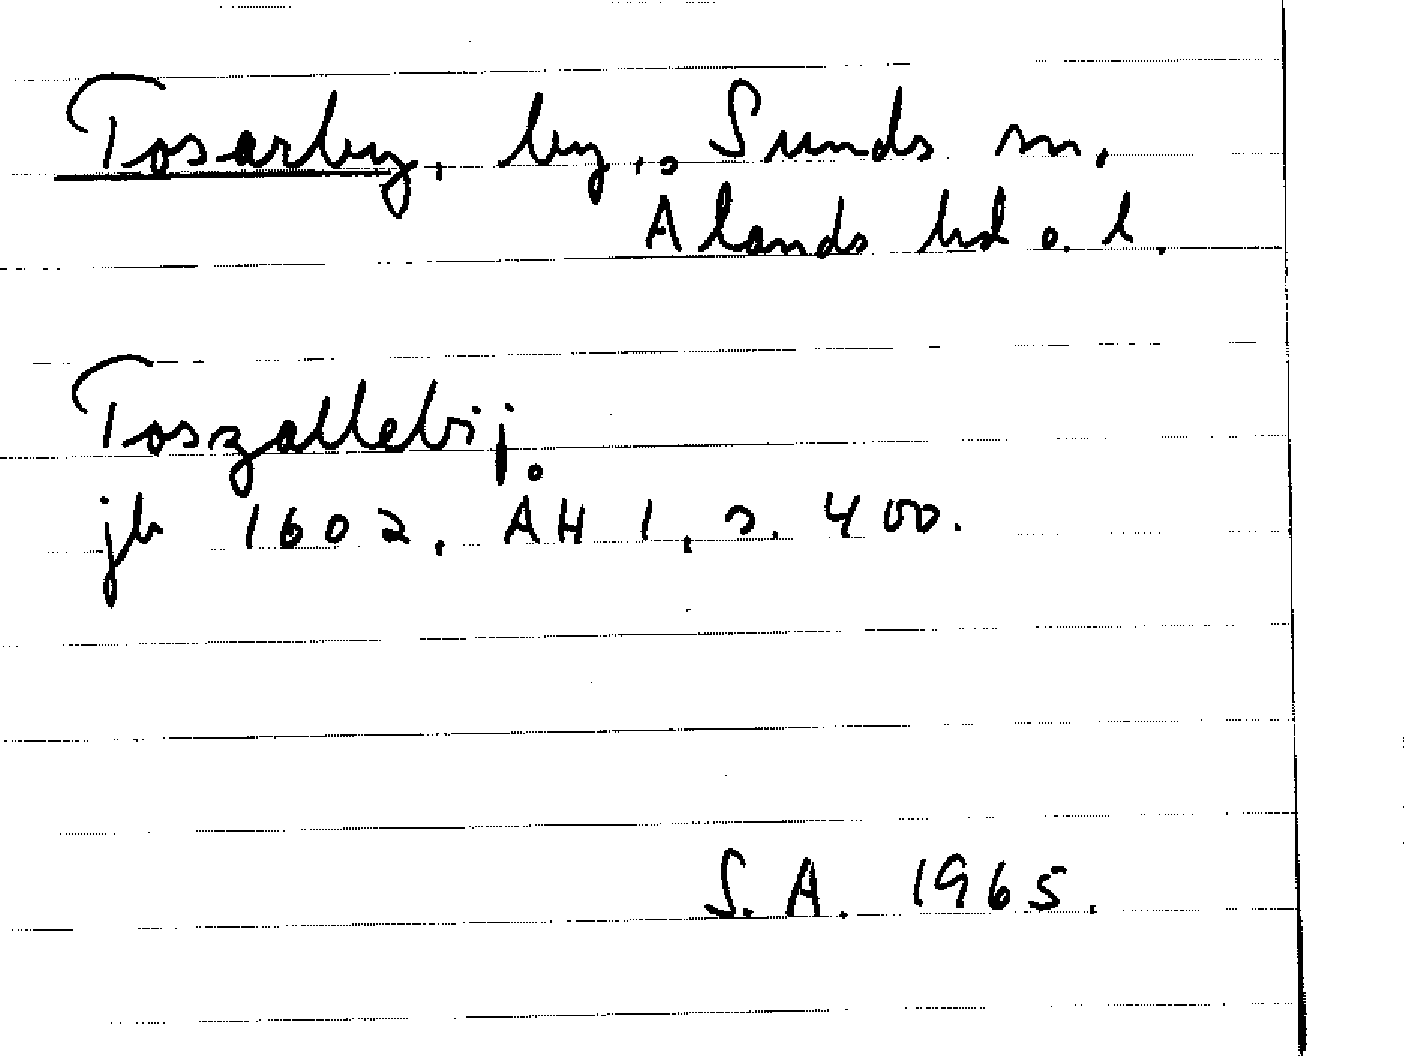 Tosarby, by, Sunds sn,
Ålands hd o. l.
Toszallebij.
jb 1602. ÅH 1, s. 400.
S. A. 1965.